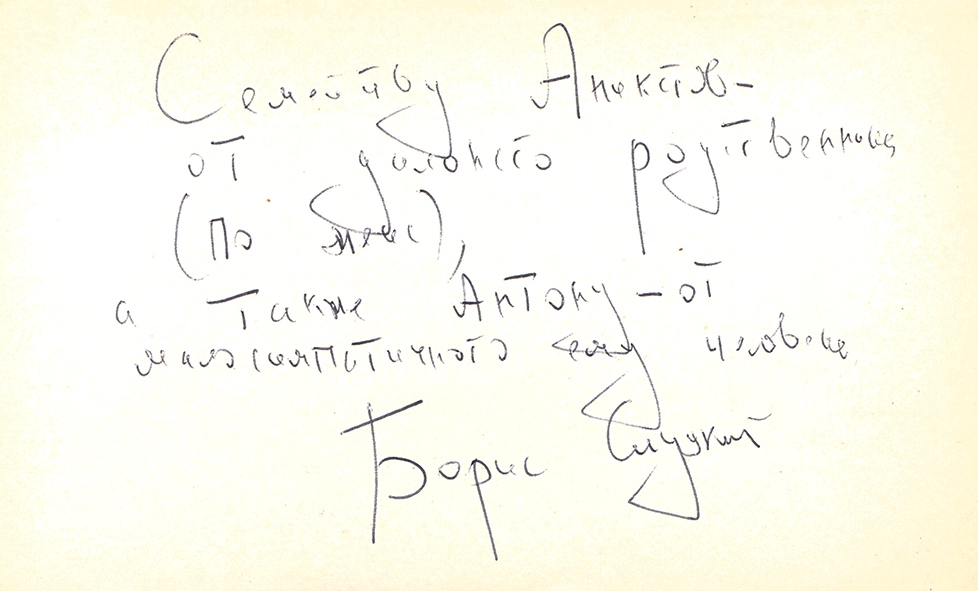 Семейству Аникстов –
от далекого родственника
(По жене),
а также Антону – от
малосимпатичного ему человека
Борис Слуцкий